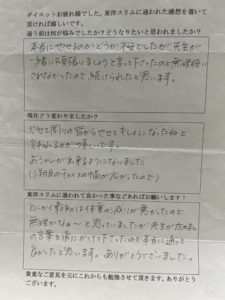 ダイエットお疲れ様でした。東洋スリムに通われた感想を書いて
頂ければ嬉しいです。
通う前は何が悩みでしたか？どうなりたいと思われましたか？
本当にやせるのかどうか不安でしたが先生が
一緒に頑張りましょうと言って下さったので無理せず
されなかったので続けられたと思います。
現在どう変わりましたか？
やせて周りの皆からやせてキレイになったねと
言われるのが嬉しいです。
おしゃれが出来るようになりました
東洋スリムに通われて良かった事などあればお願いします！
とにかく最初は体重の減りが悪かったので
無理かなぁ〜と思っていましたが先生が励まし
の言葉を常にかけて下さったので本当に通って
良かったと思います。ありがとうございました。
貴重なご意見を元にこれからも勉強させて頂きます。ありがとう
ございます。